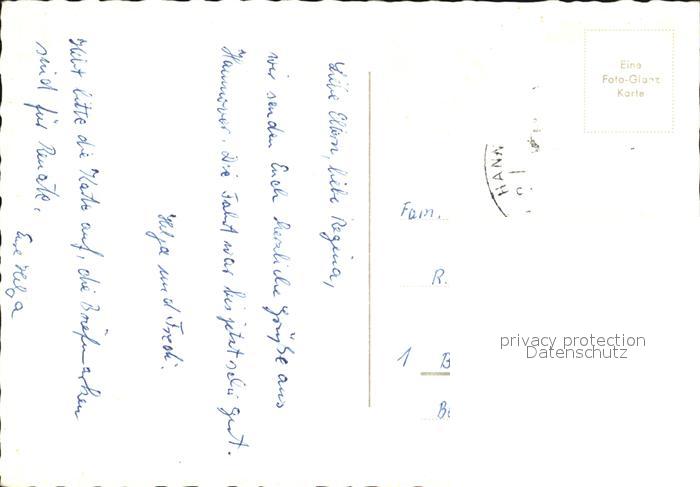 Liebe Eltern, liebe Regina,
wir senden Euch herzliche Grüße aus
Hannover. Die Fahrt war bis jetzt sehr gut.
Helga und Fredi.
Hebt bitte die Karte auf, die Briefmarken
sind für Renate.
Eure Helga
Eine
Foto-Glanz
Karte
HANN
Fam.
R.
1 B
privacy protection
Datenschutz
Be